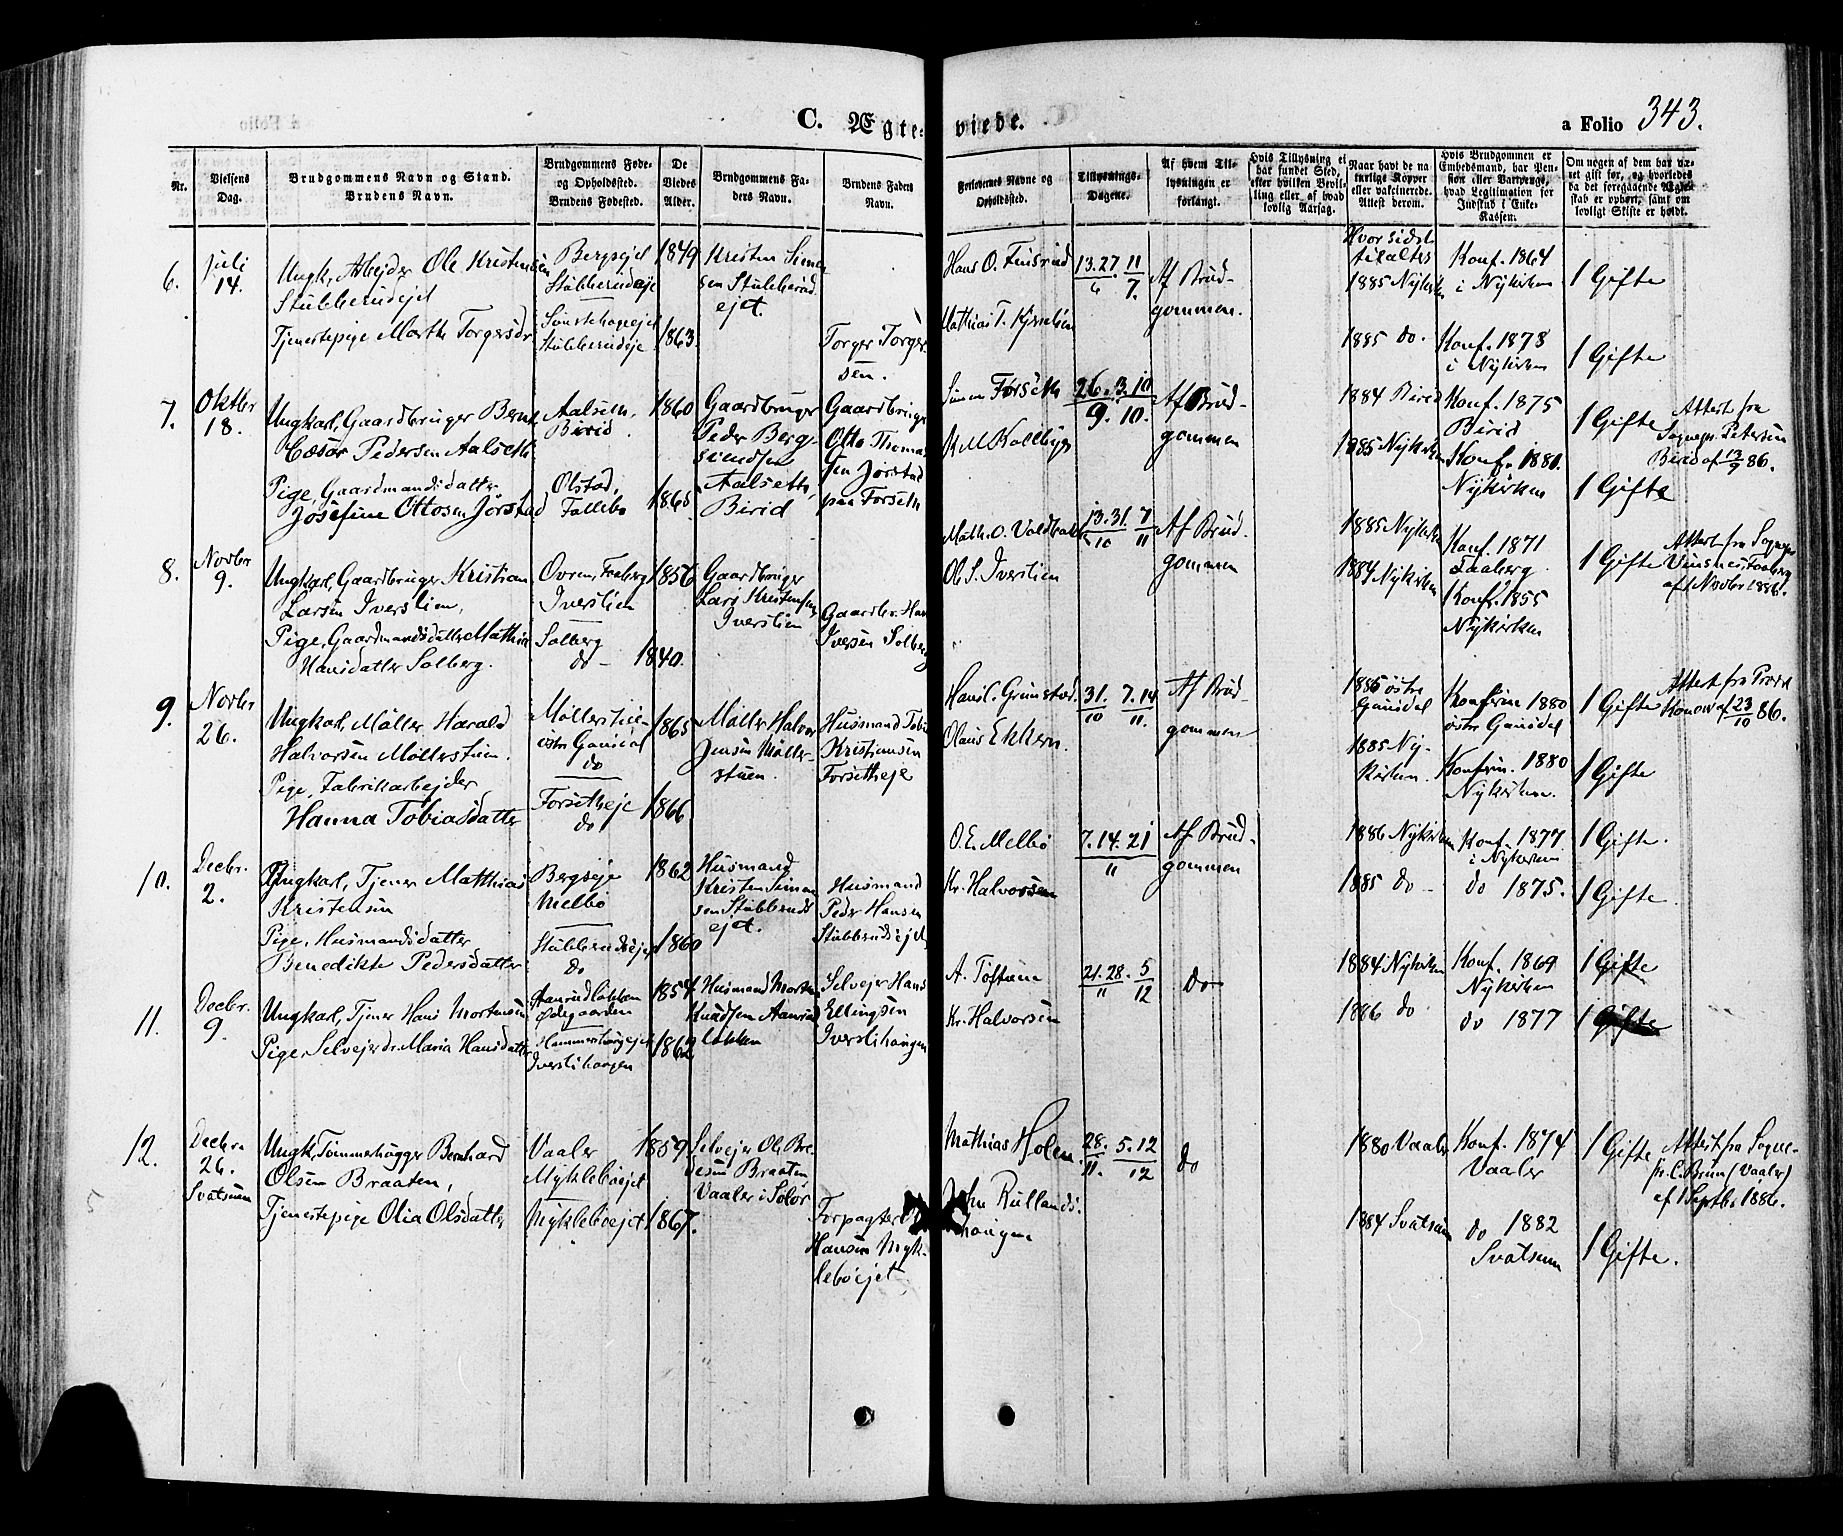 C. Ægte-viede.
a Folio 343.
Nr.
Vielsens Dag.
Brudgommens Navn og Stand.
Brudens Navn.
Brudgommens Føde- og Opholdsted.
Brudens Fødested.
De Viedes Alder.
Brudgommens Faders Navn.
Brudens Faders Navn.
Forlovernes Navne og Opholdsted.
Tillysnings-Dagene.
Af hvem Tillysningen er forlangt.
Hvis Tillysning ei har fundet Sted, efter hvilken Bevilling eller af hvad lovlig Aarsag.
Naar havt de naturlige Kopper eller vakcinerede. Attest derom.
Hvis Brudgommen er Embedsmand, har Pension eller Vartpenge, hvad Legitimation for Indskud i Enke-Kassen.
Om nogen af dem har været gift før, og hvorledes da det foregaaende Ægteskab er ophørt, samt om lovligt Skifte er holdt.
6.
Juli 14.
Ungk, Arbejder Ole Kristensen
Stubberudejet
Tjenestepige Marthe Torgersdr
Bergsejet
Stubberudeje
Stubberudeje
1849
1863
Kristen Simensen Stubberudejet.
Torger Torgersen.
Hans O. Finsrud
Mathias T.
13.27/6 11/7.
Af Brudgommen.
Hvor sidst tilaltes
1885 Nykirken
1885 do.
Konf. 1864
i Nykirken
Konf. 1878
i Nykirken
1 Gifte
1 Gifte
7.
Oktbr 18.
Ungkarl, Gaardbruger Bernt
Cæsar Pedersen Aalseth
Pige, Gaardmandsdatter
Josefine Ottosen Jørstad
Aalseth,
Birid
Olstad,
Follebo
1860
1865
Gaardbruger
Peder Bergsvendsen
Aalseth,
Birid
Gaardbruger
Otto Thomassen Jørstad
paa Forseth
Simen Forseth
K M Kolbye
26/9. 3.10/10.
Af Brudgommen
1884 Birid
1885 Nykirken
Konf. 1875
Birid
Konf. 1880.
Nykirken
1 Gifte
1 Gifte
Attest fra
Sognepr. Petersen
Birid af 13/9 86.
8.
Novbr 9.
Ungkarl, Gaardbruger Kristian
Larsen Iverslien,
Pige, Gaardmandsdatter Mathia
Hansdatter Solberg.
Ovren, Faaberg
Iverslien
Solberg
do
1856
1840.
Gaardbruger
Lars Kristensen
Iverslien
Gaardbr. Hans
Iversen Solberg
Math. O. Voldbakk
Ole S. Iverslien
13.31./10 7/11
Af Brudgommen
1885 Nykirken
1884 Nykirken
Konf. 1871
Faaberg.
Konf. 1855
Nykirken
1 Gifte
Attest fra Sognepr.
Vinsnes Faaberg
af 1 Novbr 1886.
9.
Novbr 26.
Ungkarl, Møller Harald
Halvorsen Møllerstuen.
Pige, Fabrikarbejder
Hanna Tobiasdatter
Møllerstue
østr Gausdal
do
Forsetheje
do
1865
1866
Møller Halvor
Jensen Møllerstuen.
Husmand Tobias
Kristiansen
Forsetheje
Hans L. Grimstad.
Olaus Ekkern.
31./10 7.14/11.
Af Brudgommen
1885 østre
Gausdal
1885 Nykirken.
Konfirm 1880
østr Gausdal
Konfirm. 1880
Nykirken.
1 Gifte
1 Gifte
Attest fra Provst
Konow af 23/10 86.
10.
Decbr. 2.
Ungkarl, Tjener Matthias
Kristensen
Pige, Husmandsdatter
Benedikte Pedersdatter
Bergseje
Melbö
Stubberudsejet
do
1862
1860
Husmand
Kristen Simensen Stubberudsejet.
Husmand
Peder Hansen
Stubberudsejet
O. E. Melbö
Kr. Halvorsen
7.14.21/11
Af Brudgommen
1886 Nykirken
1885 do
Konf. 1877
i Nykirken
do 1875.
1 Gifte.
1 Gifte
11.
Decbr. 9.
Ungkarl, Tjener Hans Mortensen
Pige Selvejerdr Maria Hansdatter
Aanrudløkken
Ødegaarden
Iverslihaugen
1854
1862
Husmand Morten
Knudsen Aanrudløkken
Selvejer Hans
Ellingsen
Iverslihaugen
A. Toftum
Kr. Halvorsen
21.28./11 5/12
do
1884 Nykirken
1886 do
Konf. 1869
Nykirken
do 1877
1 Gifte
1 Gifte
12.
Decbr. 26.
Svatsum
Ungk, Tømmerhugger Bernhard
Olsen Braaten,
Tjenestepige Olia Olsdatter
Vaaler
Mykleböejet
Mykleböejet
1859
1867.
Selvejer Ole Bredesen Braaten
Vaaler i Solör
Forpagter O
Hansen Mykleböejet
Mathias Holen
Rullandshaugen
28./11. 5.12/12
do
1880 Vaaler
1884 Svatsum
Konf. 1874
Vaaler
do 1882
Svatsum
1 Gifte
1 Gifte.
Attest fra Sognepr. C. Brun (Vaaler)
af 1 Septbr 1886.